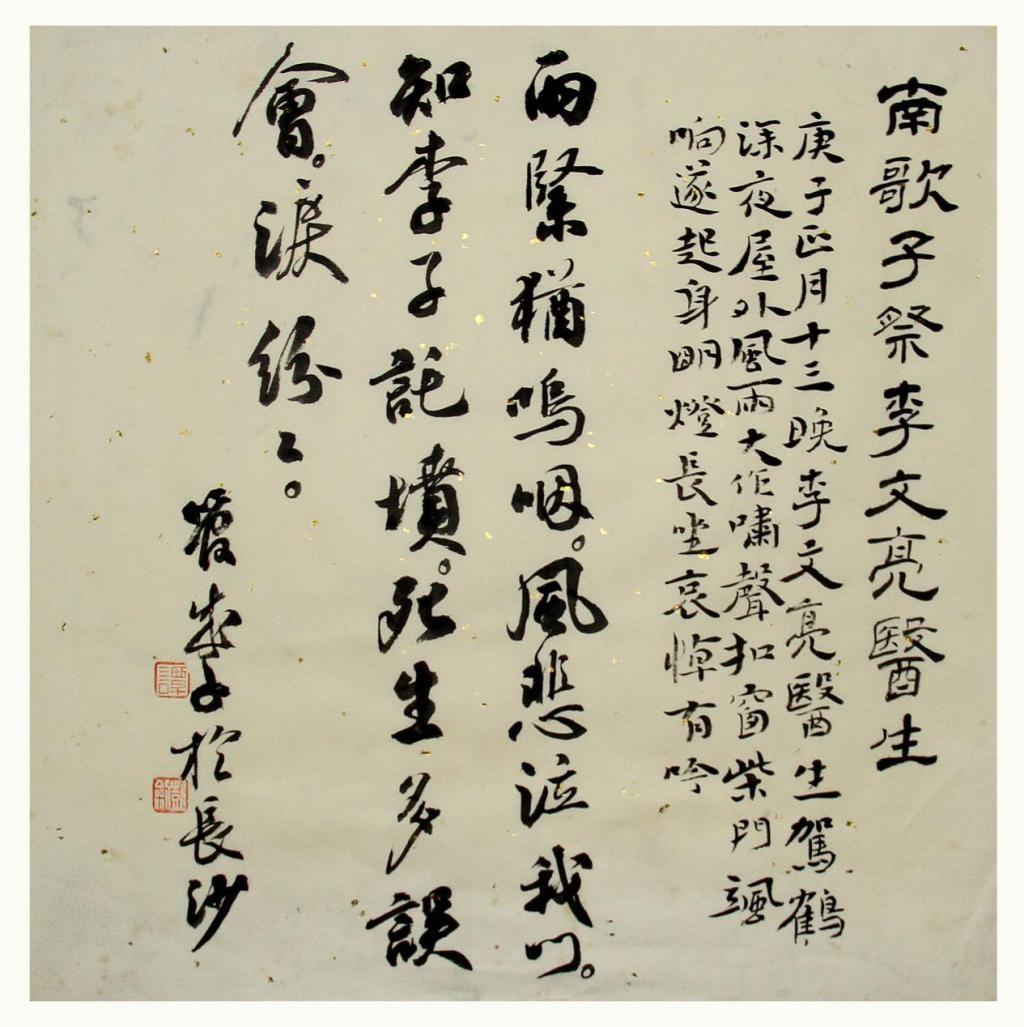 南歌子祭李文亮醫生
庚子正月十三晚李文亮醫生駕鶴
深夜屋外風雨大作嘯聲扣窗柴門颯
响遂起身明燈長坐哀悼有吟
雨緊猶嗚咽。風悲泣我門。
知李子託墳。死生多誤
會。淚紛〻。
於長沙
譚